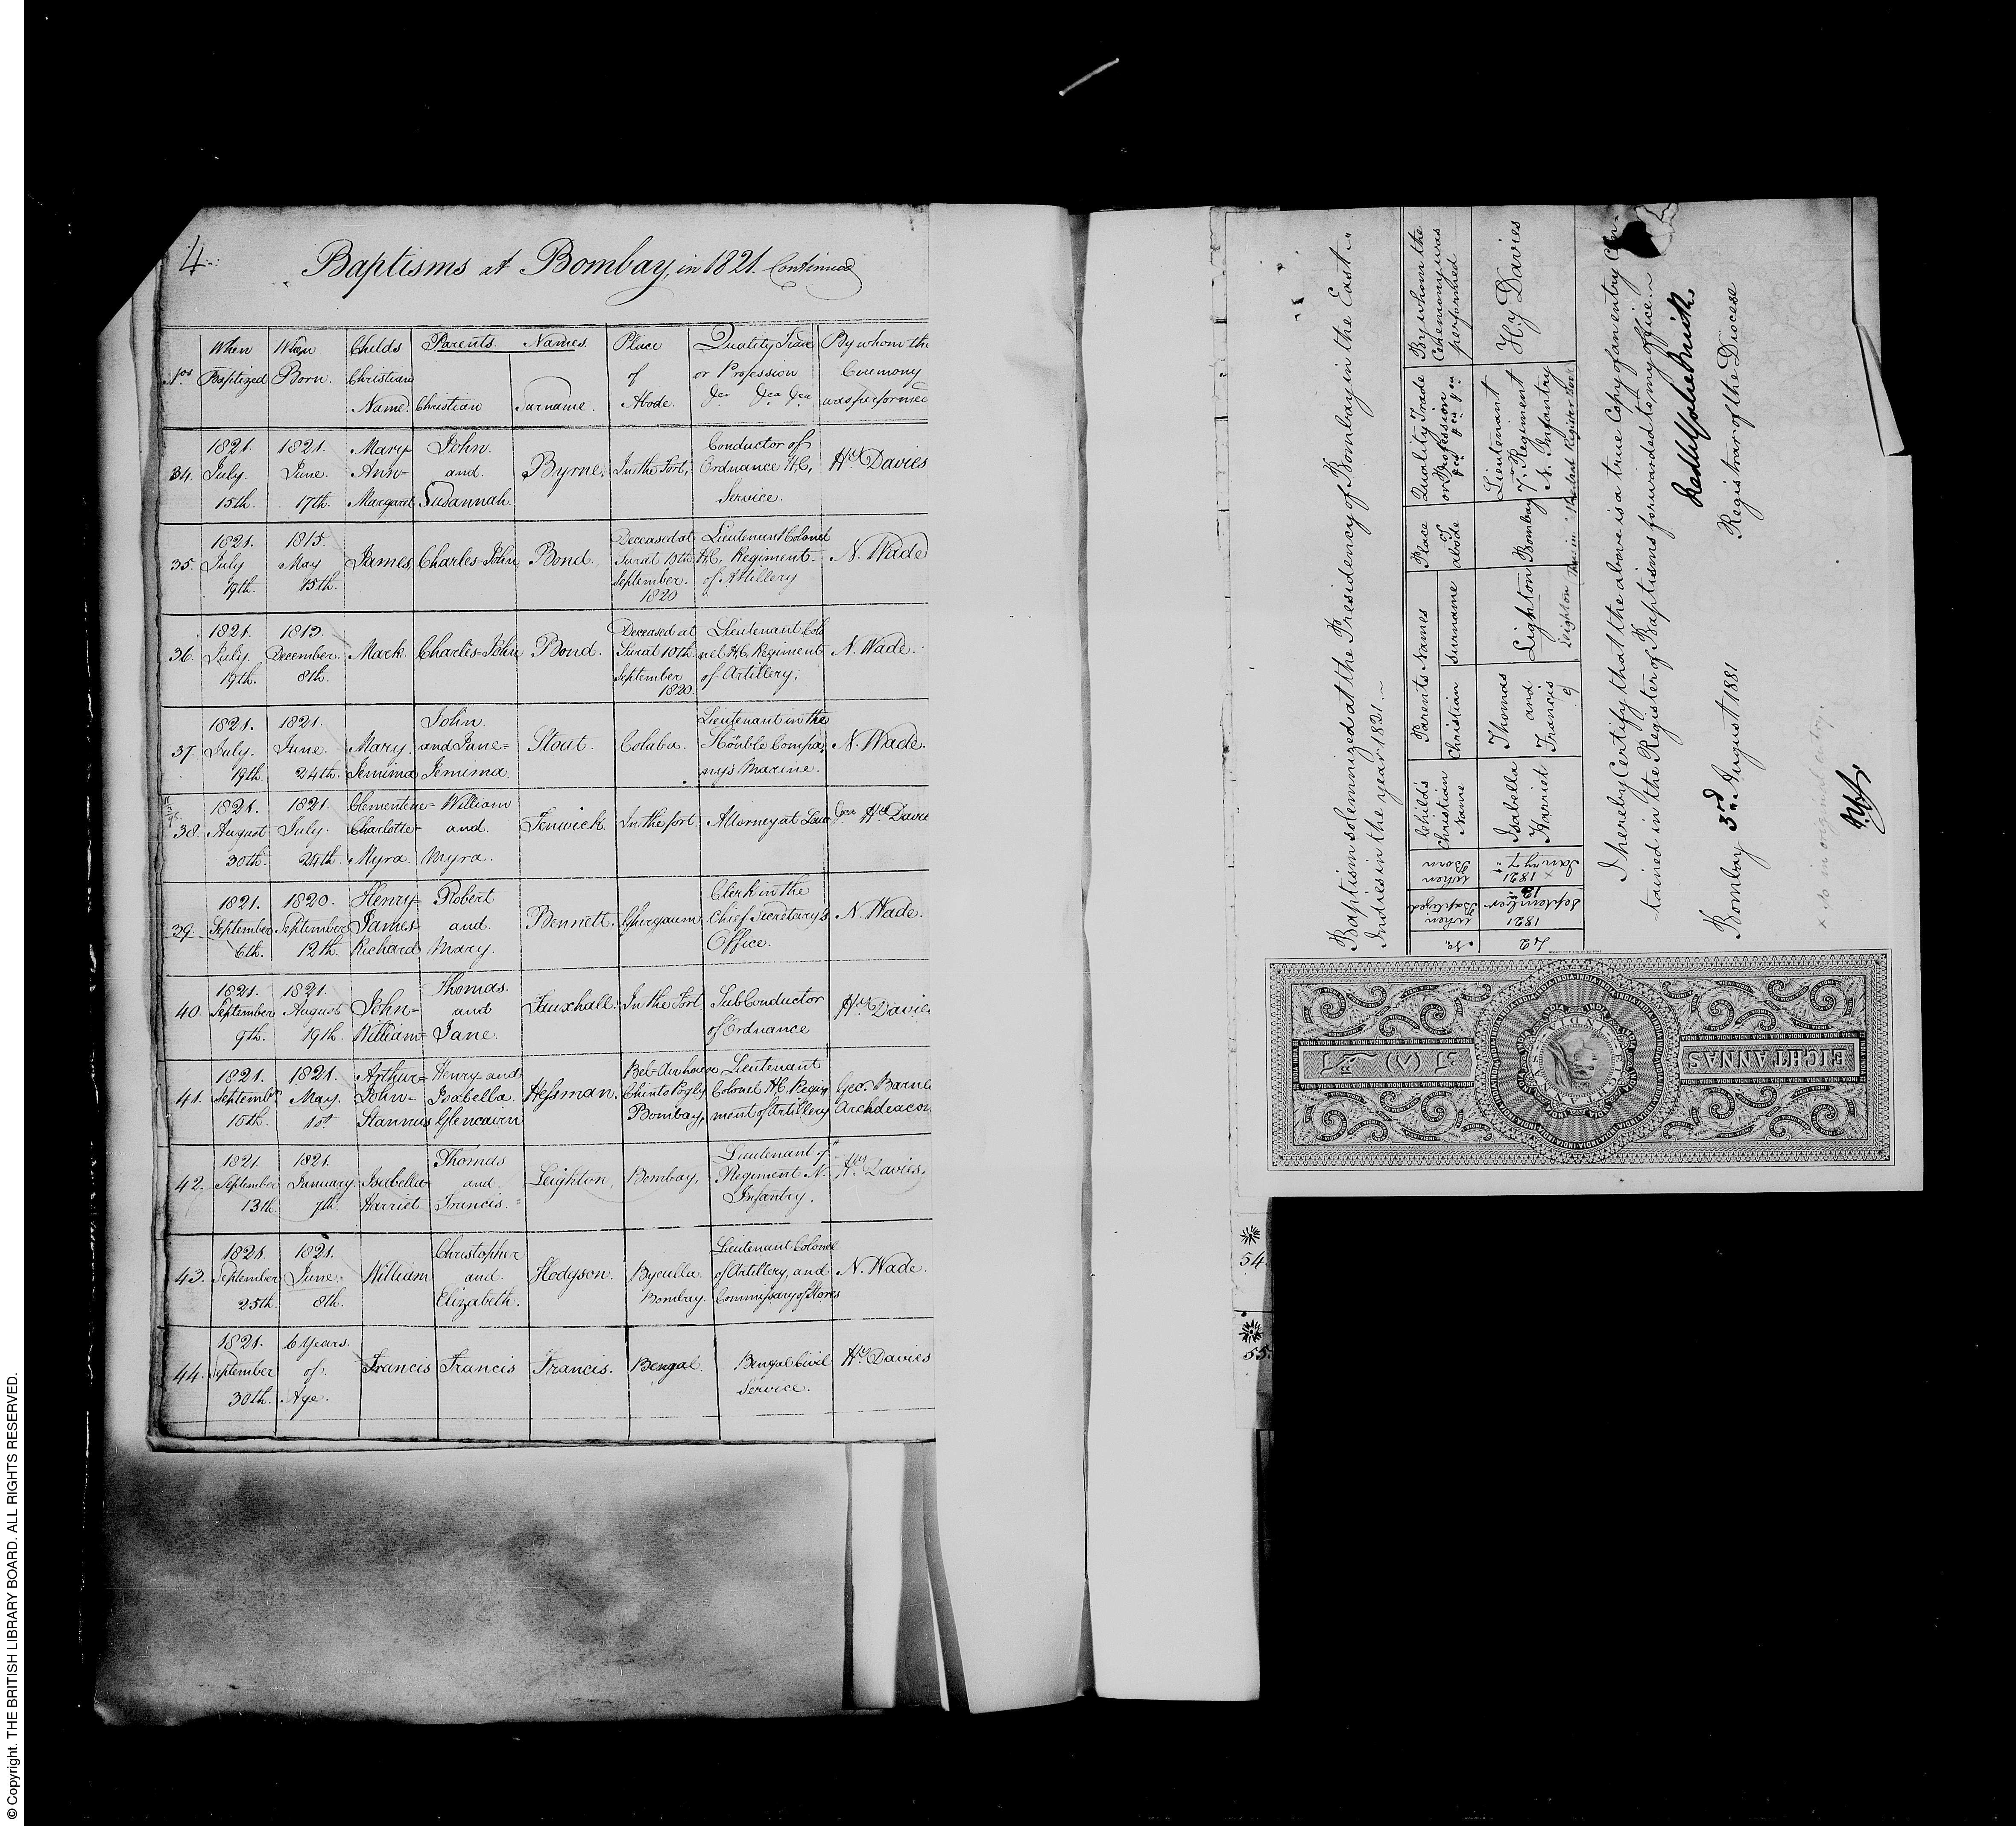 4
Baptisms at Bombay, in 1821. Continued
Nos When Baptized When Born. Childs Christian Name. Parents Names. Christian Surname. Place of Abode. Quality Trade or Profession &ca &ca &ca By whom the Ceremony was performed
34. 1821. July. 15th. 1821. June. 17th. Mary Ann Margaret John and Susannah. Byrne. In the Fort, Conductor of Ordnance H.C, Service. Hy Davies
35. 1821. July 19th. 1815. May 15th. James Charles John Bond. Deceased at Surat September. 1820 Lieutenant Colonel H.C, Regiment of Artillery N. Wade
36. 1821. July. 19th. 1813. December. 8th. Mark Charles John Bond. Deceased at Surat 10th September 1820. Lieutenant Colonel H.C, Regiment of Artillery, N. Wade.
37. 1821. July. 19th. 1821. June. 24th. Mary Jemima John and Jane Jemima. Stout. Colaba. Lieutenant in the Honble Company's Marine. N. Wade.
38. 1821. August 30th. 1821. July. 24th. Charlotte Myra. William and Myra. Fenwick In the fort Attorney at Law Hy Davie
39. 1821. September 6th. 1820. September 12th. Henry James Richard Robert and Mary. Bennett. Ghirgaum Clerk in the Chief Secretary's Office. N. Wade.
40. 1821. September 9th. 1821. August 19th. John William Thomas and Jane. Fauxhall. In the Fort Sub Conductor of Ordnance Hy Davies
41. 1821. September 10th. 1821. May. 1st Arthur John Stannus Henry and Isabella Glencairn Hessman. Bombay, Lieutenant Colonel H.C. Regiment of Artillery Geo. Barne Archdeacon
42. 1821. September 13th 1821. January. 7th. Isabella Harriet Thomas and Francis. Leighton, Bombay. Lieutenant 7" Regiment N. Infantry. Hy Davies.
43. 1821. September 25th. 1821. June. 8th. William Christopher and Elizabeth. Hodgson. Byculla Bombay. Lieutenant Colonel of Artillery, and Commissary of Stores N. Wade.
44. 1821. September 30th. 6 Years of Age. Francis Francis Francis. Bengal. Bengal Civil Service. Hy Davies
Baptism solemnized at the Presidency of Bombay in the East
Indies in the year 1821.
No. When Baptized When Born Child's Christian Name Parents Names Christian Surname Place of abode Quality Trade or Profession &ca &ca &ca By whom the Ceremony was performed
42 1821 September 13 1821 January 7 x Isabella Harriet Thomas and Francis Lighton Bombay Lieutenant 7" Regiment N. Infantry Hy Davies
Leighton
I hereby Certify that the above is a true Copy of an entry Con
tained in the Register of Baptisms forwarded to my office.
Bombay 3rd August 1881
Registrar of the Diocese
x So in original entry.
INDIA
EIGHT ANNAS
EIGHT ANNAS
54.
55.
© Copyright. THE BRITISH LIBRARY BOARD. ALL RIGHTS RESERVED.